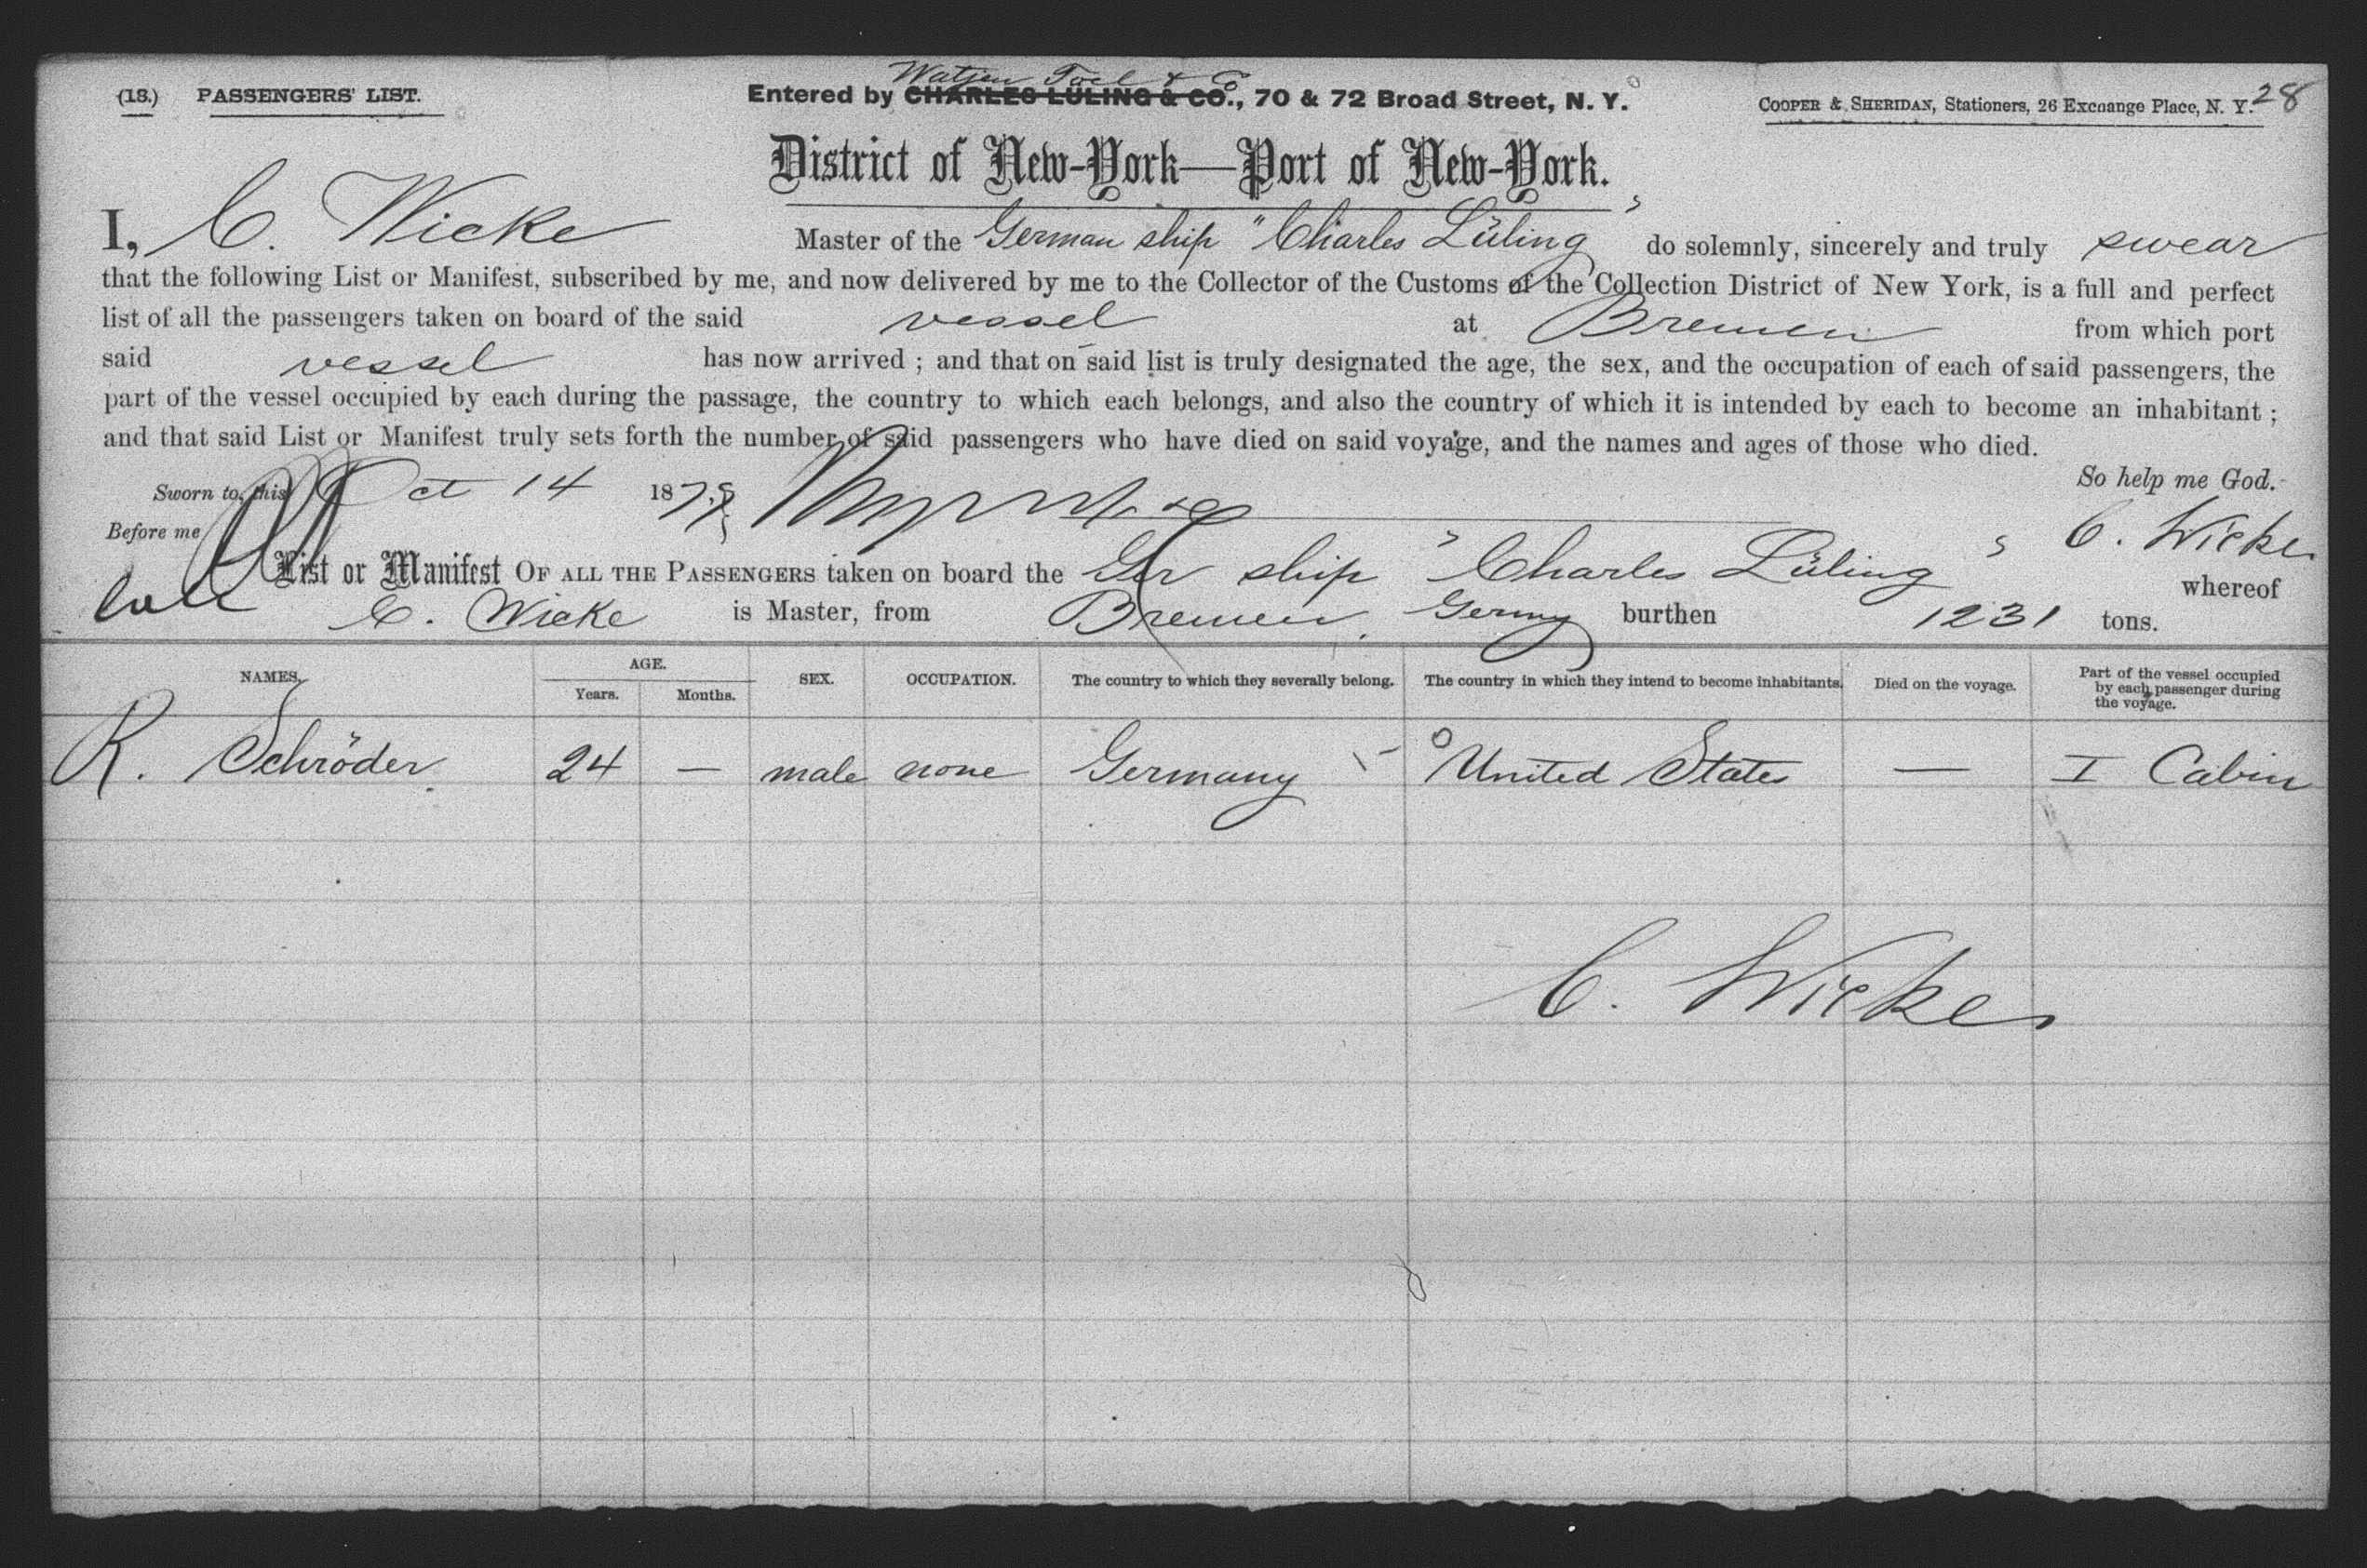 (18.) PASSENGERS' LIST.
Watjen Toel & Co
Entered by CHARLES LÜLING & CO., 70 & 72 Broad Street, N. Y.
COOPER & SHERIDAN, Stationers, 26 Excnange Place, N. Y. 28
District of New-York—Port of New-York.
I, C. Wicke Master of the German ship "Charles Lüling" do solemnly, sincerely and truly swear
that the following List or Manifest, subscribed by me, and now delivered by me to the Collector of the Customs of the Collection District of New York, is a full and perfect
list of all the passengers taken on board of the said vessel at Bremen from which port
said vessel has now arrived ; and that on said list is truly designated the age, the sex, and the occupation of each of said passengers, the
part of the vessel occupied by each during the passage, the country to which each belongs, and also the country of which it is intended by each to become an inhabitant ;
and that said List or Manifest truly sets forth the number of said passengers who have died on said voyage, and the names and ages of those who died.
So help me God.
Sworn to, this Oct 14 1879
Before me C. Wicke
List or Manifest OF ALL THE PASSENGERS taken on board the Ger ship "Charles Lüling" whereof
C. Wicke is Master, from Bremen, Germy burthen 1231 tons.
NAMES. AGE. Years. Months. SEX. OCCUPATION. The country to which they severally belong. The country in which they intend to become inhabitants. Died on the voyage. Part of the vessel occupied by each passenger during the voyage.
R. Schröder 24 — male none Germany United States — I Cabin
C. Wicke